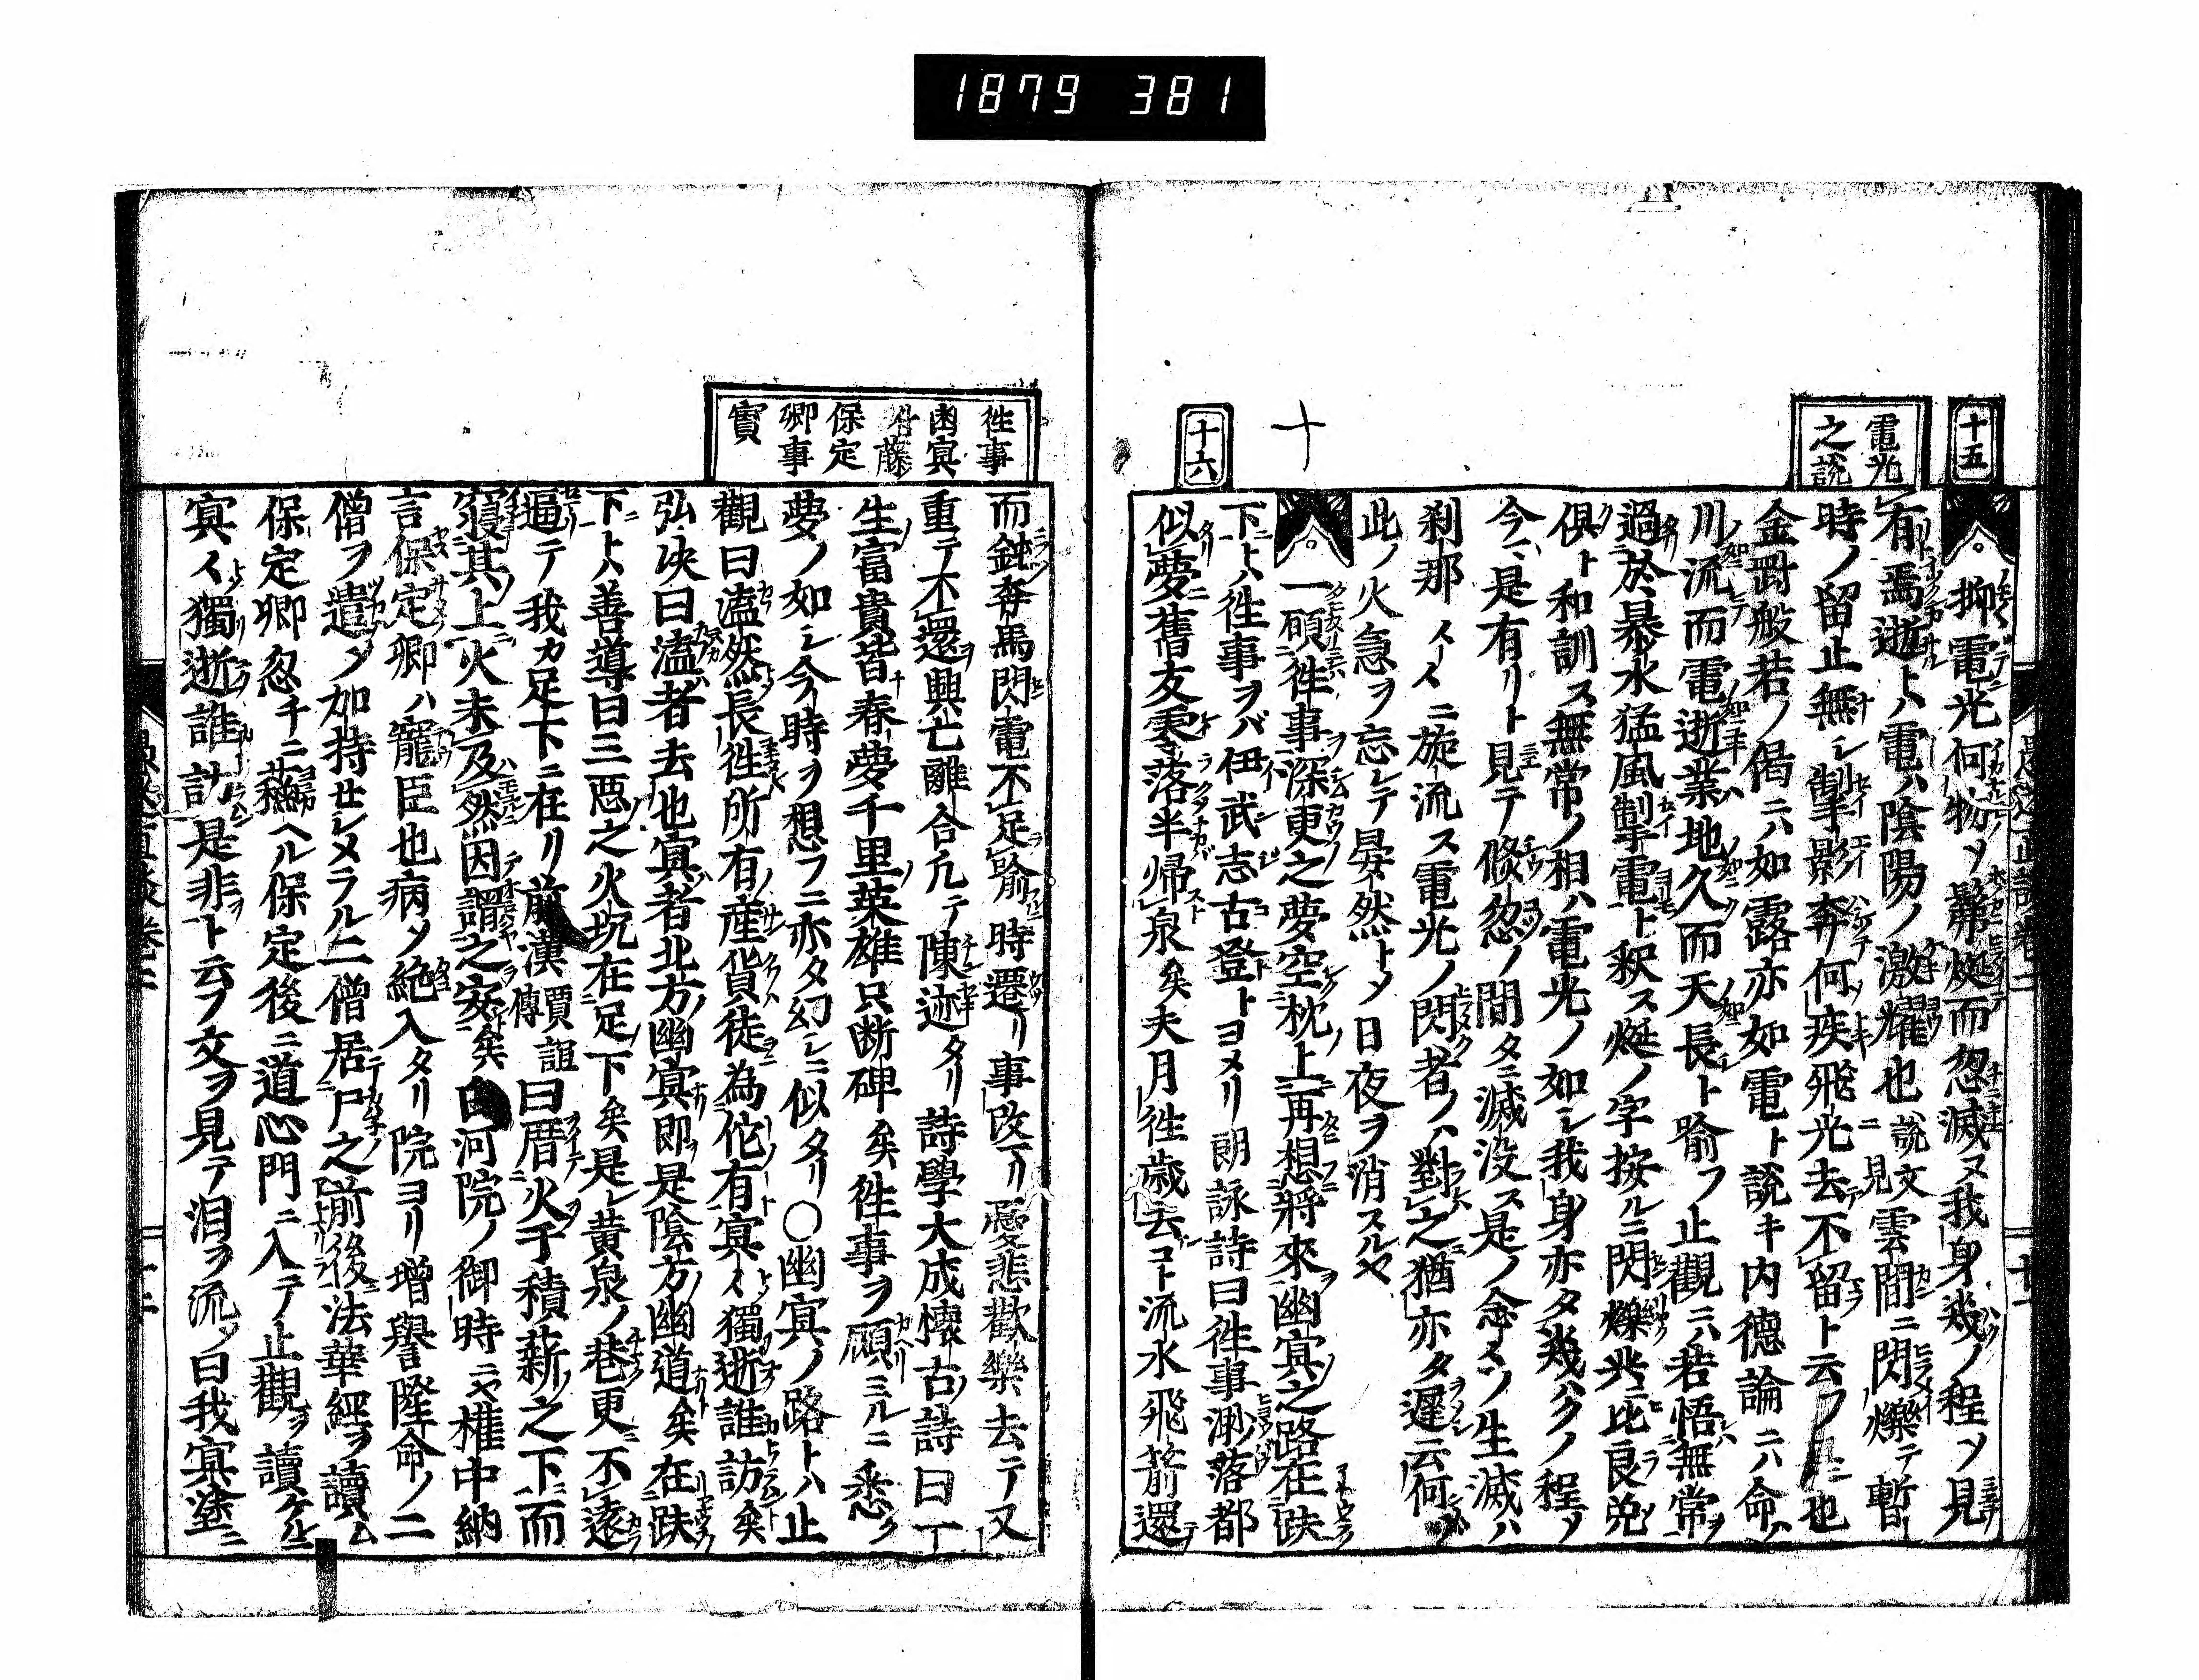 1879 381
十五
電光
之説
抑電光何物ソ鬂㷼而忽滅ヌ我身幾ノ程ソ見
有焉逝トハ電ハ陰陽ノ激耀也説文ニ見雲間ニ閃爍テ暫
時ノ留止無シ掣影奔何疾飛光去不留ト云フ是也
金罸般若ノ偈ニハ如露亦如電ト説キ内徳論ニハ命ハ
川流而電逝業ハ地久而天長ト喩フ止觀ニハ若悟無常
過於暴水猛風掣電ト釈ス㷼ノ字按ルニ閃爍光ニ比良兜
俱ト和訓ス無常ノ相ハ電光ノ如シ我身亦タ幾ハクノ程ソ
今ハ是有リト見テ倏忽ノ間タニ滅没ス是ノ念々ツ生滅ハ
刹那々々ニ旋流ス電光ノ閃者ノハ對之猶亦タ遅云何
此ノ火急ヲ忘レテ晏然トメ日夜ヲ消スルヤ
十六
一顧徃事深更之夢空枕上再想將來幽冥之路在趺
下トハ徃事ヲバ伊武志古登トヨメリ朗詠詩曰徃事渺落都
似夢舊友零落半帰泉矣夫月徃歳去コト流水飛箭還
徃事
幽冥
付藤
保定
卿事
實
而鈍奔馬閃電不足喩時遷リ事改マリ憂悲歡樂去テ又
重テ不還興亡離合凢テ陳迹タリ詩學大成懷古ノ詩曰丁
生富貴皆春夢千里英雄只断碑矣徃事ヲ顧ミルニ悉ク
夢ノ如シ今時ヲ想フニ亦タ幻シニ似タリ〇幽冥ノ路トハ止
觀曰溘然長徃所有産貨徒為佗有冥々獨逝誰訪矣
弘决曰溘者去也冥者北方幽冥即是陰方幽道矣在趺
下トハ善導曰三惡之火坑在足下矣是レ黄泉ノ巷更不遠
逼テ我カ足下ニ在リ前漢賈誼傳曰厝火于積薪之下而
寝其上火未及然因謂之安矣白河院ノ御時ニヤ權中納
言保定卿ハ寵臣也病メ絶入タリ院ヨリ増譽隆命ノ二
僧ヲ遣メ如持せシメラル二僧居尸之前後法華經ヲ讀ム
保定卿忽チニ蘇ヘル保定後ニ道心門ニ入テ止觀ヲ讀ケルニ
冥々獨逝誰訪是非ト云フ文ヲ見テ泪ヲ流メ曰我冥塗ニ